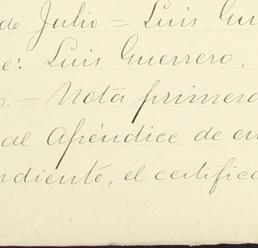 de Julio = Luis Gu
e: Luis Guerrero,
. = Nota primera
al Apéndice de
ndiente, el certific